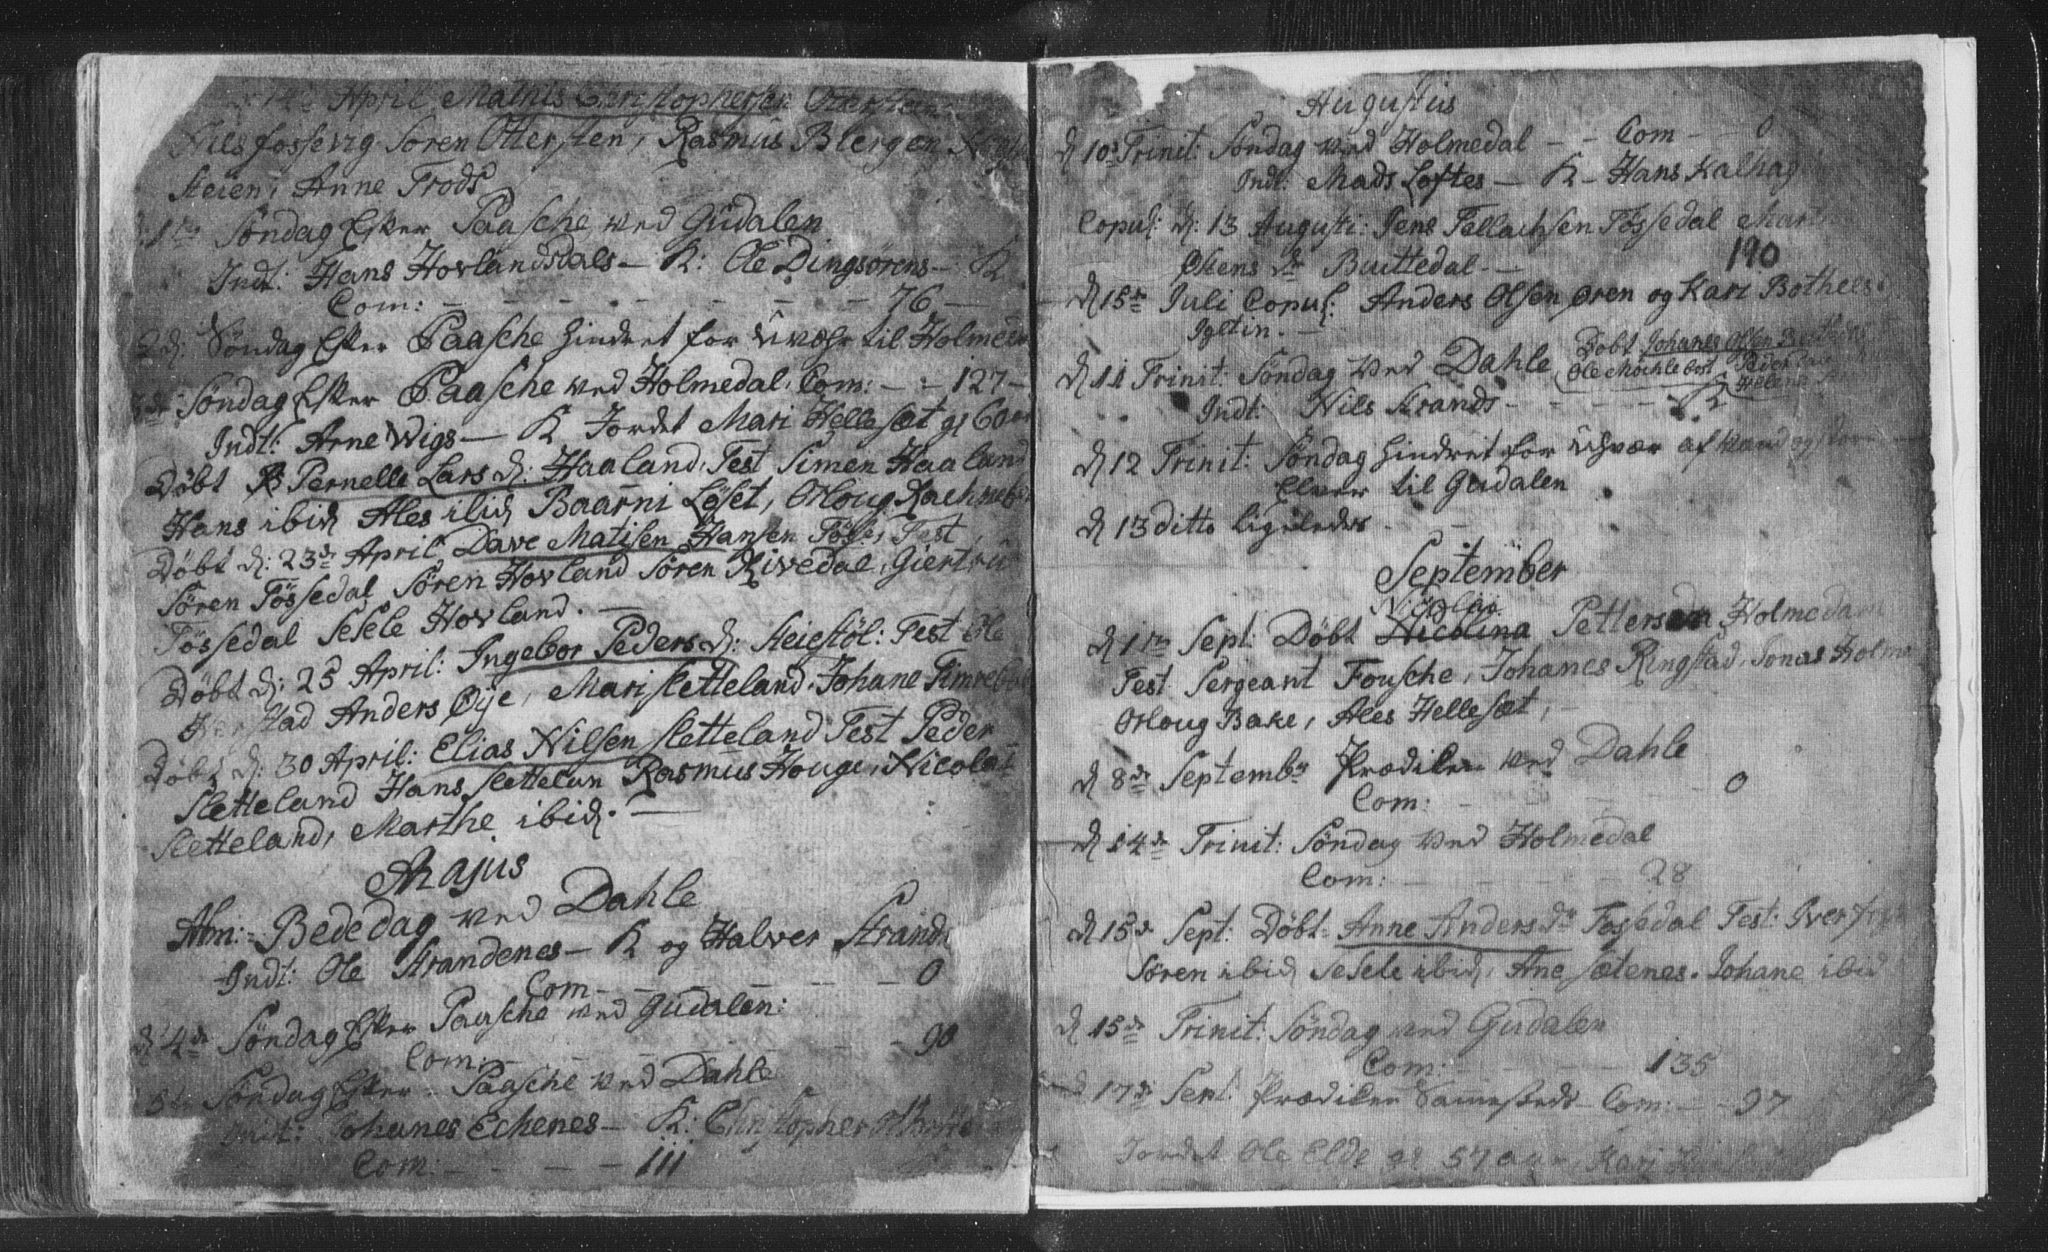 April Mathis Christophersen Ottersteen
Nils fossevig Soren Ottersten, Rasmus Blergen
steien, Anne Trods
1ste Søndag Efter Paasche ved Gudalen
Indt: Hans Hovlandsdals — K: Ole Dingsørens — K
Com: — — — — — — 76 —
2d: Søndag Efter Paasche hindret for Uvæhr til Holmedal
Søndag Efter Paasche ved Holmedal. Com: — - 127 —
Indt: Arne Wigs — K Jordet Mari Hellesæt gl 60 aar
Døbt Pernelle Lars d: Haaland, Test Simen Haaland
Hans ibid Ales ibid Baarni Løset, Oloug
Døbt d: 23de April Dave Matisen Hansen Fosse, Test
Søren Fossedal Søren Hovland Søren Rivedal, Giertru
Fossedal Sesele Hovland. —
Døbt d: 25 April: Ingebor Peders d: steiestøl: Test Ole
Anders Øye, Mari sletteland, Johane
Døbt d: 30 April: Elias Nilsen sletteland Test Peder
sletteland Hans slettelan Rasmus Houge, Nicolai
sletteland, Marthe ibid. —
Majus
Alm: Bededag ved Dahle
Indt: Ole strandenes — K og Halver Strand
Com — — — — — 0
d 4de Søndag Efter Paasche ved Gudalen:
Com: — — — — — 90
5te Søndag Efter Paasche ved Dahle
Johanes Echenes — K: Christopher
Com — — — — 111
Augustus
d 10de Trinit: Søndag ved Holmedal — - Com — - 0
Indt: Mads Loftes — K — Hans Kalhag
Copul: d: 13 Augusti: Jens Tellachsen Fossedal Mart
Olsens dr Buttedal —
190
d 15de Juli Copul: Anders Olsen øren og Kari Bothels
Igltin. —
d 11 Trinit: Søndag ved Dahle Døbt Johanes Olsen
Ole Mochlebost, Peder
Helena
Indt: Nils strands — — — — K
d 12 Trinit: Søndag hindret for Uhvær af vand og store
Elver til Gudalen
d 13 ditto ligeledes. —
September
Nicolai
d 1ste Sept: Døbt Nicolina Pettersen Holmedal
Test Sergeant Fousche, Johanes Ringstad, Jonas Holme
Oloug Bake, Ales Hellesæt, —
d 8de Septembr Prædiken ved Dahle
Com: — — — — 0
d 14de Trinit: Søndag ved Holmedal
Com: — — — — 28
d 15de Sept: Døbt: Anne Anders dr Fossedal Test: Iver
Søren ibid Sesele ibid, Ane sætenes. Johane ibid
d 15de Trinit: Søndag ved Gudalen
Com: — — — 135
17de Sept: Prædiken Sammesteds — Com: — - 97
Jordet Ole Elde gl 57 aar, Kari